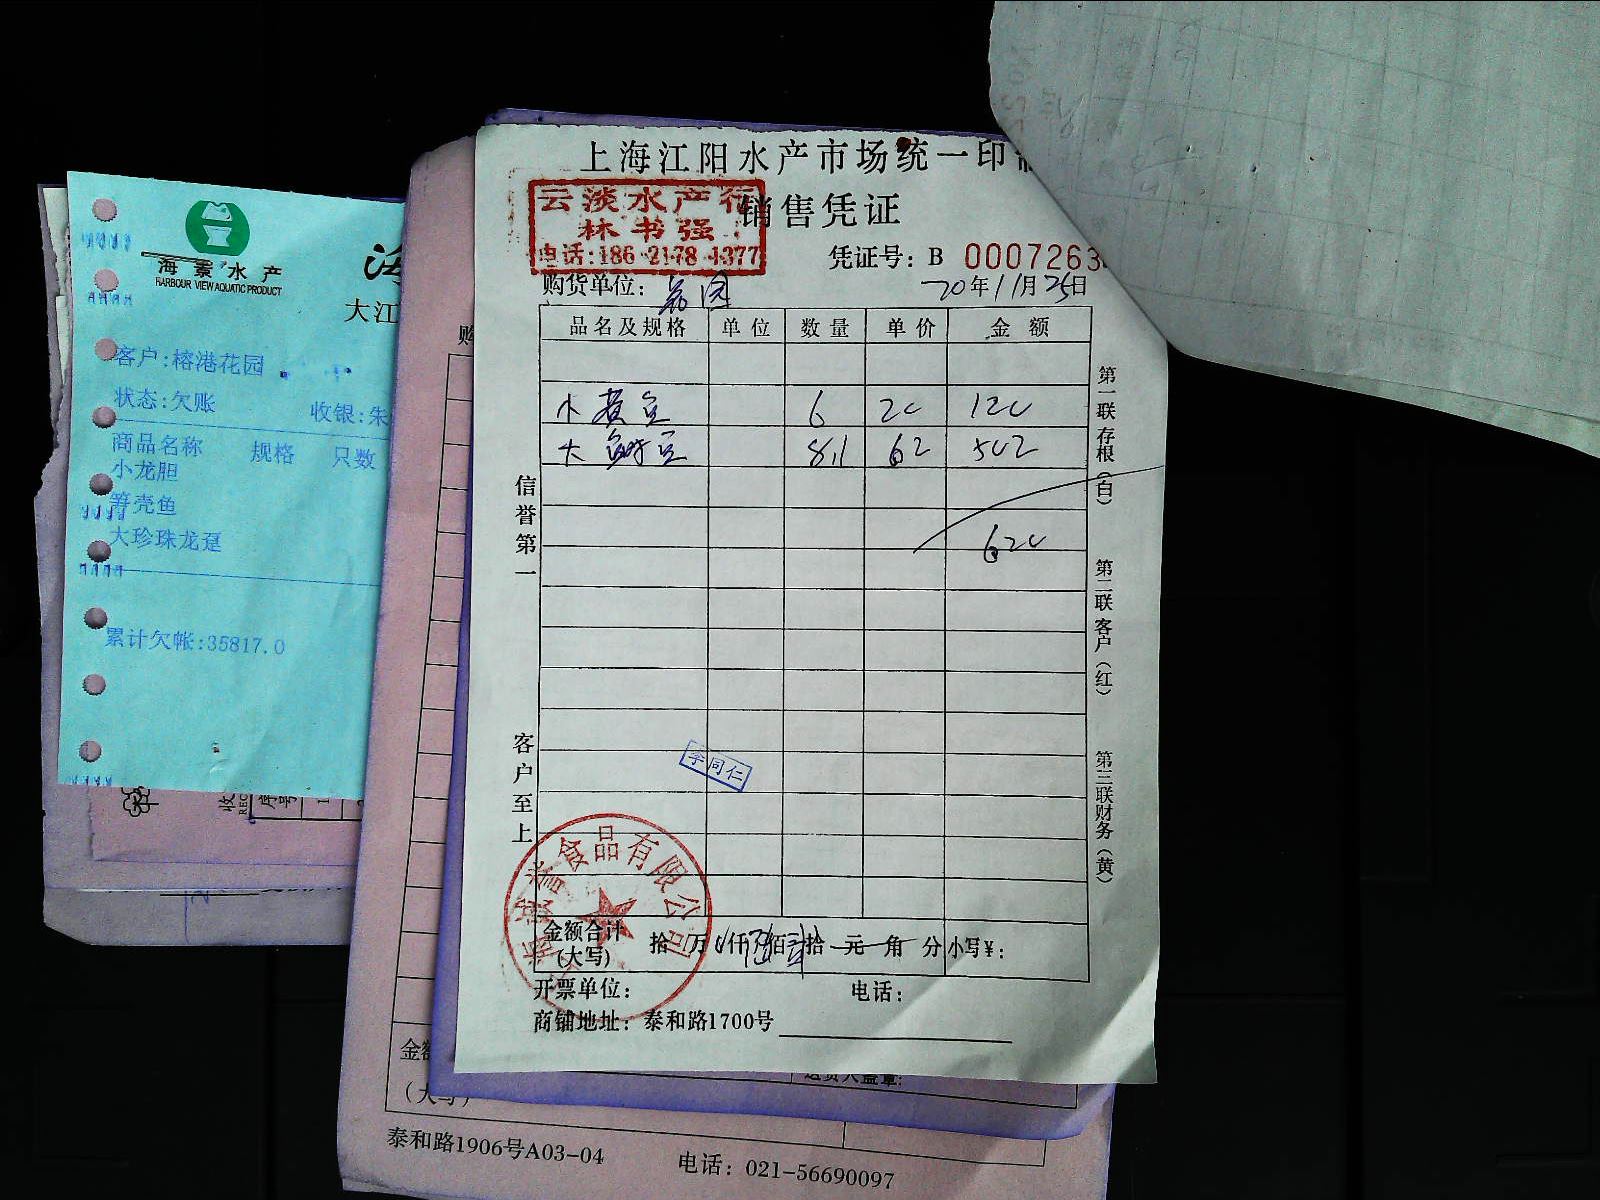 上海江阳水产市场统一印制
销售凭证
云淡水产行
林书强
电话:186 2178 1377
凭证号: B 0007263
购货单位:
20年11月25日
品名及规格 单位 数量 单价 金额
小黄鱼 6 20 120
8.1 62 502
620
信誉第一
客户至上
第一联存根(白)
第二联客户(红)
第三联财务(黄)
李同仁
食品有限公司
金额合计
(大写)
拾 万 仟 佰 拾 元 角 分 小写¥:
开票单位:
电话:
商铺地址: 泰和路1700号
海景水产
HARBOUR VIEW AQUATIC PRODUCT
大江
客户:榕港花园
状态:欠账
收银:朱
商品名称 规格 只数
小龙胆
笋壳鱼
大珍珠龙趸
累计欠帐:35817.0
购
金额
(大写)
送货人盖章:
泰和路1906号A03-04
电话: 021-56690097